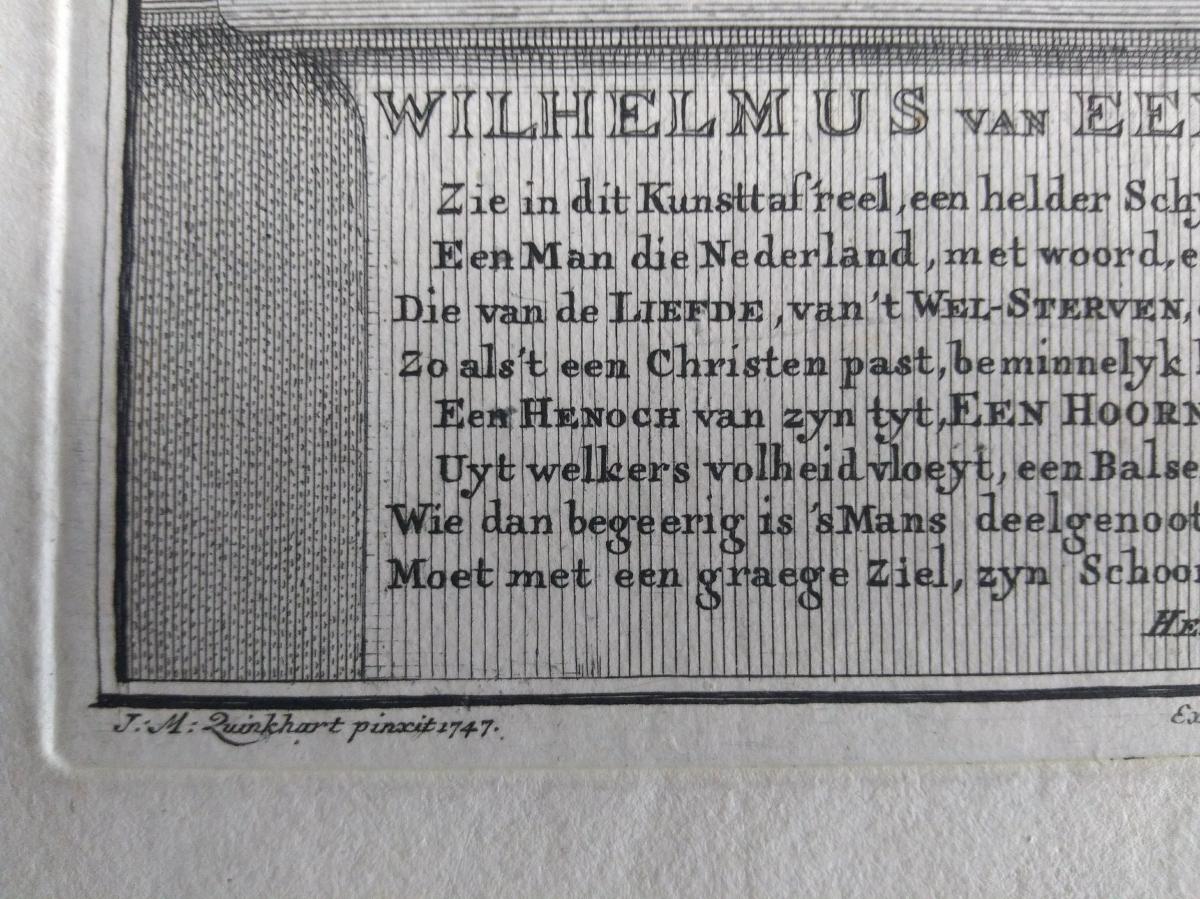 WILHELMUS VAN EE
Zie in dit Kunsttaf'reel, een helder Sch
Een Man die Nederland, met woord, e
Die van de LIEFDE, van 't WEL-STERVEN,
Zo als 't een Christen past, beminnelyk
Een HENOCH van zyn tyt, EEN HOORN
Uyt welkers volheid vloeyt, een Balse
Wie dan begeerig is 's Mans deelgenoo
Moet met een graege Ziel, zyn Schoo
HE
J: M: Quinkhart pinxit 1747.
Ex